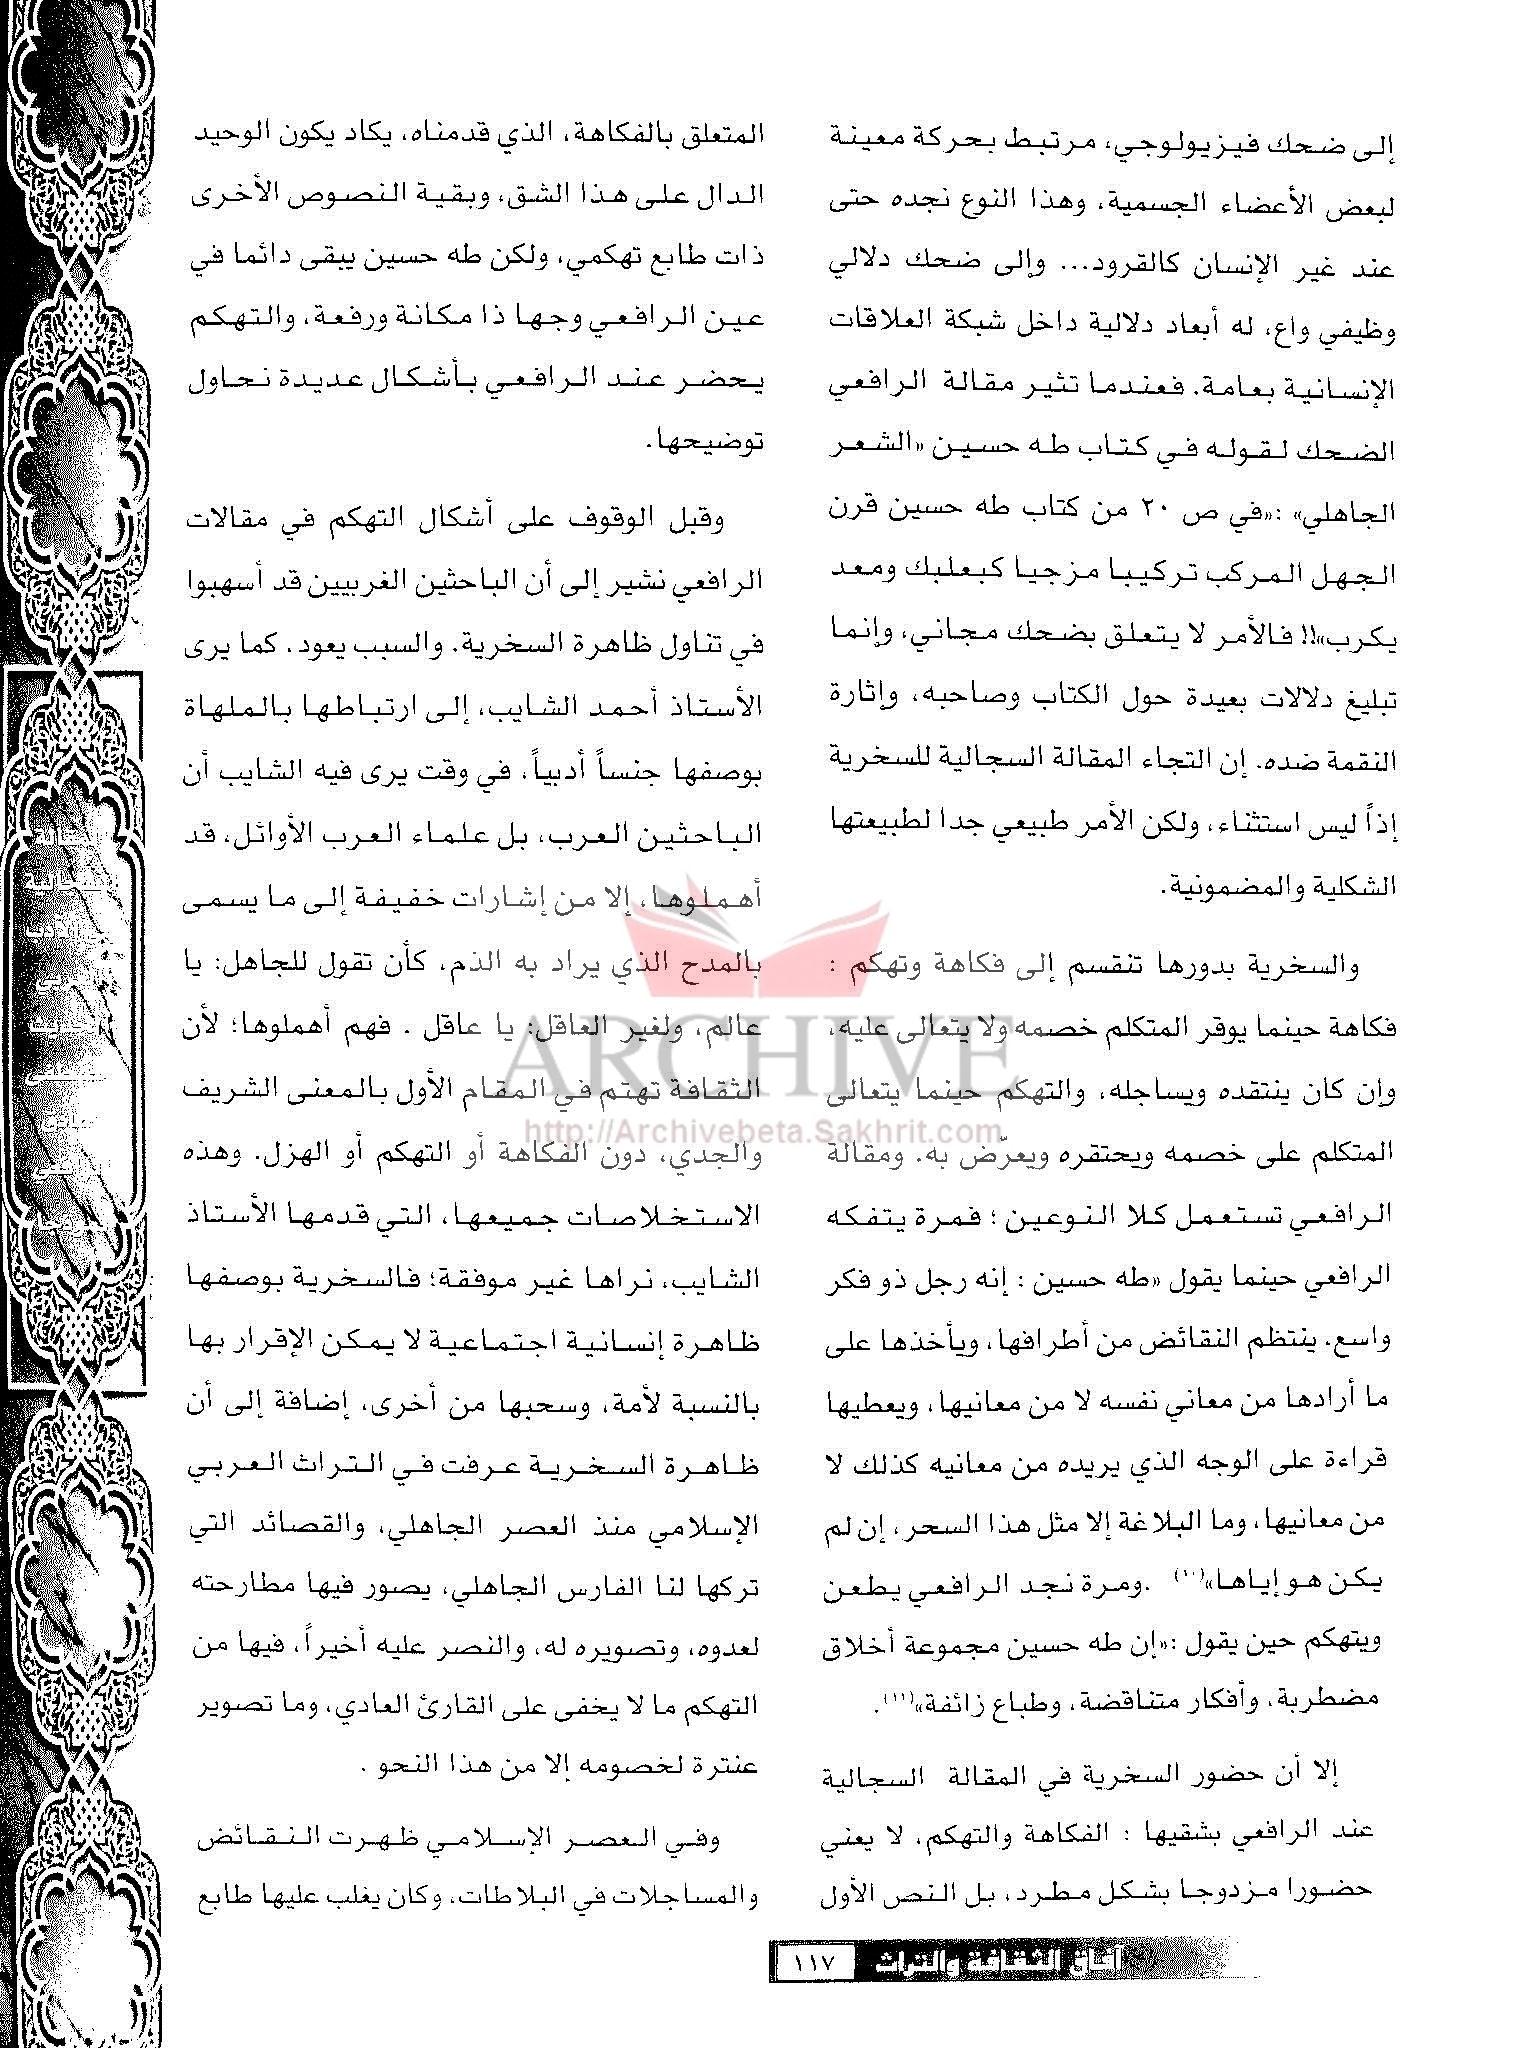 إلى ضحك فيزيولوجي، مرتبط بحركة معينة
لبعض الأعضاء الجسمية، وهذا النوع نجده حتى
عند غير الإنسان كالقرود... وإلى ضحك دلالي
وظيفي واع، له أبعاد دلالية داخل شبكة العلاقات
الإنسانية بعامة. فعندما تثير مقالة الرافعي
الضحك لقوله في كتاب طه حسين «الشعر
الجاهلي» :«في ص ٢٠ من كتاب طه حسين قرن
الجهل المركب تركيبا مزجيا كبعلبك ومعد
يكرب»!! فالأمر لا يتعلق بضحك مجاني، وإنما
تبليغ دلالات بعيدة حول الكتاب وصاحبه، وإثارة
النقمة ضده. إن التجاء المقالة السجالية للسخرية
إذاً ليس استثناء، ولكن الأمر طبيعي جدا لطبيعتها
الشكلية والمضمونية.
والسخرية بدورها تنقسم إلى فكاهة وتهكم :
فكاهة حينما يوقر المتكلم خصمه ولا يتعالى عليه،
وإن كان ينتقده ويساجله، والتهكم حينما يتعالى
المتكلم على خصمه ويحتقره ويعرّض به. ومقالة
الرافعي تستعمل كلا النوعين ؛ فمرة يتفكه
الرافعي حينما يقول «طه حسين : إنه رجل ذو فكر
واسع، ينتظم النقائض من أطرافها، ويأخذها على
ما أرادها من معاني نفسه لا من معانيها، ويعطيها
قراءة على الوجه الذي يريده من معانيه كذلك لا
من معانيها، وما البلاغة إلا مثل هذا السحر، إن لم
يكن هو إياها»(١٠) .ومرة نجد الرافعي يطعن
ويتهكم حين يقول :«إن طه حسين مجموعة أخلاق
مضطربة، وأفكار متناقضة، وطباع زائفة»(١١).
إلا أن حضور السخرية في المقالة السجالية
عند الرافعي بشقيها : الفكاهة والتهكم، لا يعني
حضورا مزدوجا بشكل مطرد، بل النص الأول
المتعلق بالفكاهة، الذي قدمناه، يكاد يكون الوحيد
الدال على هذا الشق، وبقية النصوص الأخرى
ذات طابع تهكمي، ولكن طه حسين يبقى دائما في
عين الرافعي وجها ذا مكانة ورفعة، والتهكم
يحضر عند الرافعي بأشكال عديدة نحاول
توضيحها.
وقبل الوقوف على أشكال التهكم في مقالات
الرافعي نشير إلى أن الباحثين الغربيين قد أسهبوا
في تناول ظاهرة السخرية. والسبب يعود، كما يرى
الأستاذ أحمد الشايب، إلى ارتباطها بالملهاة
بوصفها جنساً أدبياً، في وقت يرى فيه الشايب أن
الباحثين العرب، بل علماء العرب الأوائل، قد
أهملوها، إلا من إشارات خفيفة إلى ما يسمى
بالمدح الذي يراد به الذم، كأن تقول للجاهل: يا
عالم، ولغير العاقل: يا عاقل . فهم أهملوها؛ لأن
الثقافة تهتم في المقام الأول بالمعنى الشريف
والجدي، دون الفكاهة أو التهكم أو الهزل. وهذه
الاستخلاصات جميعها، التي قدمها الأستاذ
الشايب، نراها غير موفقة؛ فالسخرية بوصفها
ظاهرة إنسانية اجتماعية لا يمكن الإقرار بها
بالنسبة لأمة، وسحبها من أخرى، إضافة إلى أن
ظاهرة السخرية عرفت في التراث العربي
الإسلامي منذ العصر الجاهلي، والقصائد التي
تركها لنا الفارس الجاهلي، يصور فيها مطارحته
لعدوه، وتصويره له، والنصر عليه أخيراً، فيها من
التهكم ما لا يخفى على القارئ العادي، وما تصوير
عنترة لخصومه إلا من هذا النحو .
وفي العصر الإسلامي ظهرت النقائض
والمساجلات في البلاطات، وكان يغلب عليها طابع
ARCHIVE
http://Archivebeta.Sakhrit.com
آفاق الثقافة والتراث ١١٧